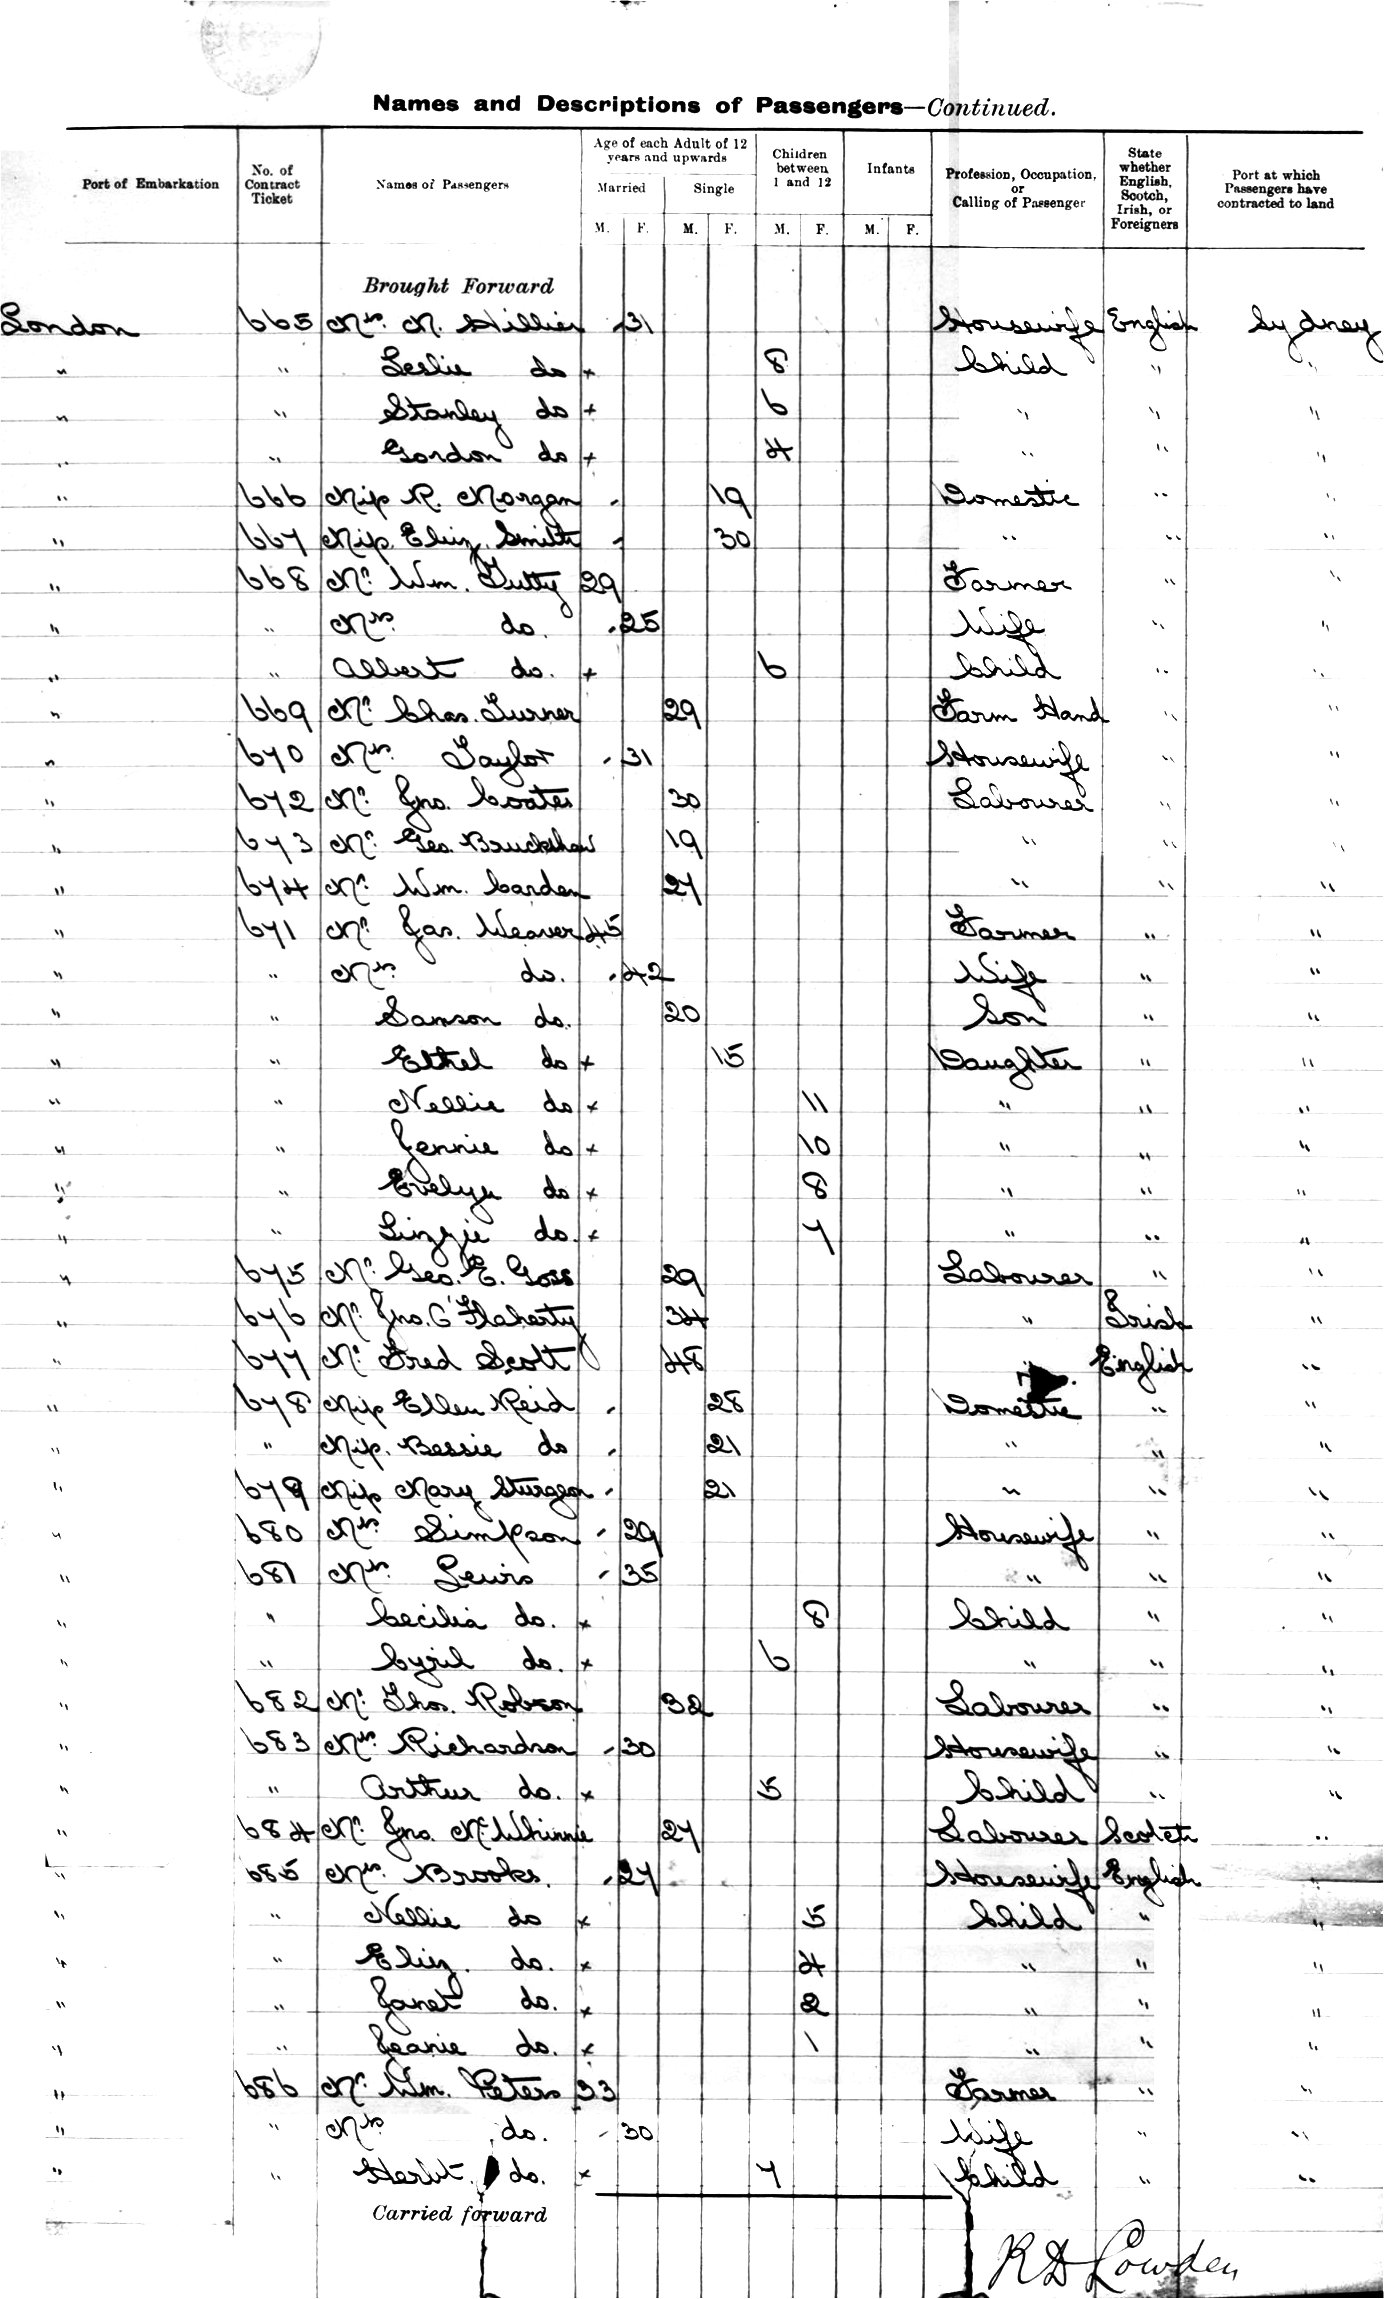 Names and Descriptions of Passengers—Continued.
Port of Embarkation | No. of Contract Ticket | Names of Passengers | Age of each Adult of 12 years and upwards | Children between 1 and 12 | Infants | Profession, Occupation, or Calling of Passenger | State whether English, Scotch, Irish, or Foreigners | Port at which Passengers have contracted to land
Married | Single
M. F. M. F. M. F. M. F.
Brought Forward
London 665 Mrs. M. Hillier - 31 Housewife English Sydney
" " Leslie do x 8 Child " "
" " Stanley do x 6 " " "
" " Gordon do x 4 " " "
" 666 Miss R. Morgan - 19 Domestic " "
" 667 Miss Eliz. Smith - 30 " " "
" 668 Mr. Wm. Tutty 29 Farmer " "
" " Mrs. do. - 25 Wife " "
" " Albert do. x 6 Child " "
" 669 Mr. Chas. Turner 29 Farm Hand " "
" 670 Mrs. Taylor - 31 Housewife " "
" 672 Mr. Jno. Coates 30 Labourer " "
" 673 Mr. Geo. Bruckshaw 19 " " "
" 674 Mr. Wm. Carden 27 " " "
" 671 Mr. Jas. Weaver 45 Farmer " "
" " Mrs. do. - 42 Wife " "
" " Samson do. 20 Son " "
" " Ethel do x 15 Daughter " "
" " Nellie do x 11 " " "
" " Jennie do x 10 " " "
" " Evelyn do x 8 " " "
" " Lizzie do. x 7 " " "
" 675 Mr. Geo. E. Goss 29 Labourer " "
" 676 Mr. Jno. O'Flaherty 34 " Irish "
" 677 Mr. Fred Scott 48 " English "
" 678 Miss Ellen Reid - 28 Domestic " "
" " Miss. Bessie do - 21 " " "
" 679 Miss Mary Sturgeon - 21 " " "
" 680 Mrs. Simpson - 29 Housewife " "
" 681 Mrs. Lewis - 35 " " "
" " Cecilia do. x 8 Child " "
" " Cyril do. x 6 " " "
" 682 Mr. Thos. Robson 32 Labourer " "
" 683 Mrs. Richardson - 30 Housewife " "
" " Arthur do. x 5 Child " "
" 684 Mr. Jno. McWhinnie 27 Labourer Scotch "
" 685 Mrs. Brooks. - 27 Housewife English "
" " Nellie do x 5 Child " "
" " Eliz. do. x 4 " " "
" " Janet do. x 2 " " "
" " Jeanie do. x 1 " " "
" 686 Mr. Wm. Peters 33 Farmer " "
" " Mrs. do. - 30 Wife " "
" " Herbt. do. x 7 Child " "
Carried forward
R D Lowden